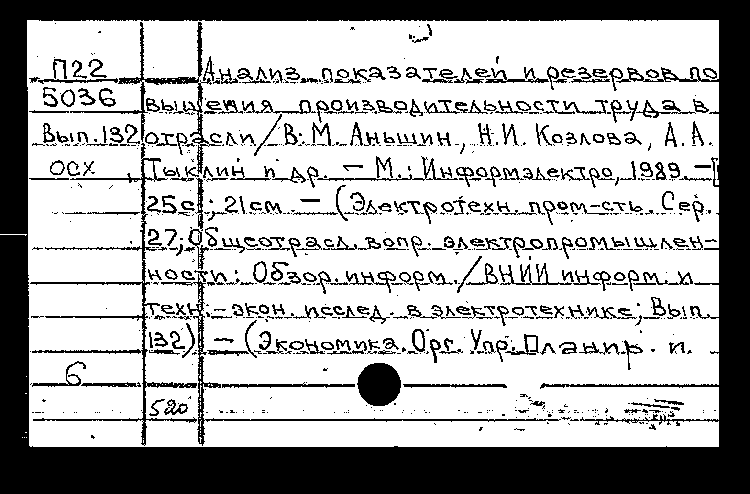 П22 Анализ показателей и резервов по
5036 вышения производительности труда в
Вып.132 отрасли/В.М. Аньшин, Н.И. Козлова, А.А.
осх Тыклин и др. — М.: Информэлектро, 1989. —
25с.; 21см. — (Электротехн. пром-сть. Сер.
27, Общеотрасл. вопр. электропромышлен-
ности: Обзор. информ./ВНИИ информ. и
техн.-экон. исслед. в электротехнике; Вып.
132) — (Экономика. Орг. Упр. Планир. и.
6
520